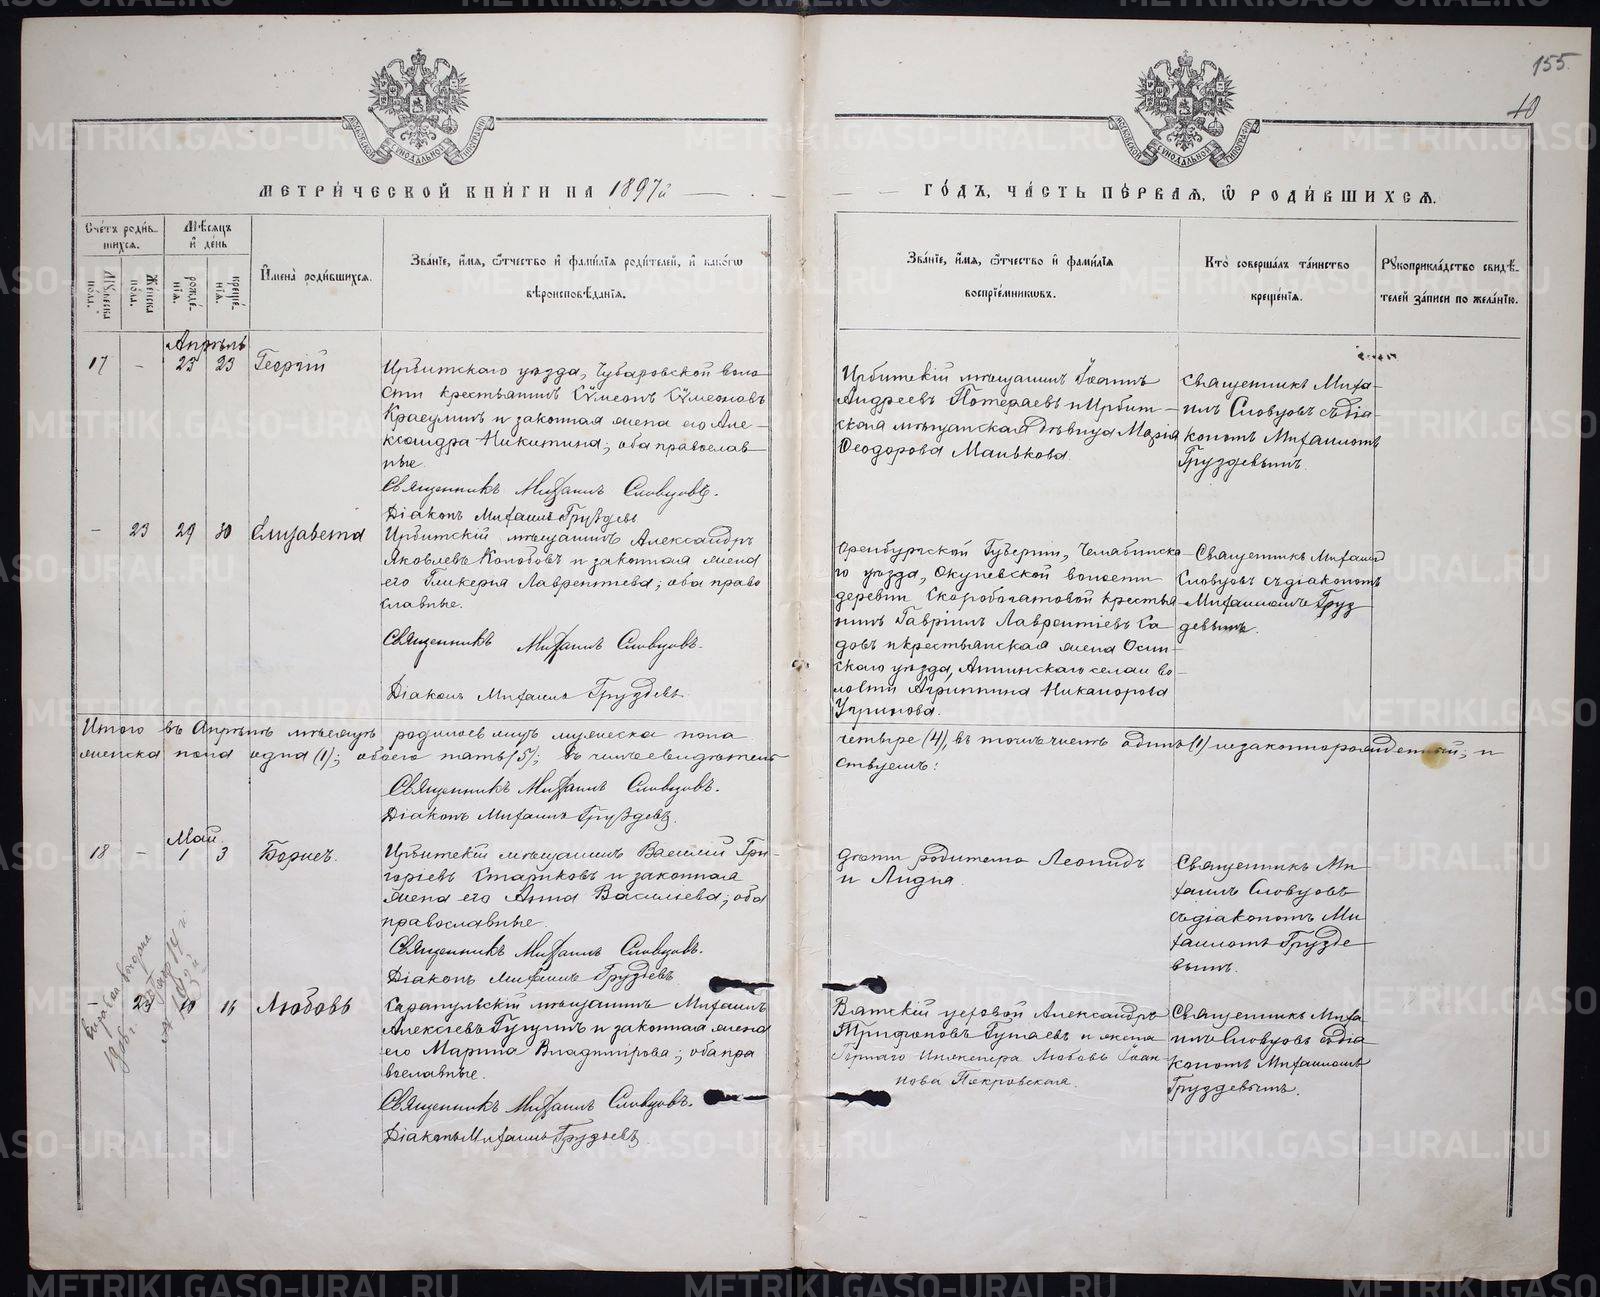 155.
40
МЕТРИ́ЧЕСКОЙ КНИ́ГИ НА 1897й
ГО́ДЪ, ЧА́СТЬ ПЕ́РВАЯ, Ѡ РОДИ́ВШИХСЯ.
Сче́тъ роди́в-
шихся.
Му́жеска
по́ла.
Же́нска
по́ла.
Мѣ́сяцъ
и́ де́нь
рожде́-
нїя.
креще́-
нїя.
И́мена̀ роди́вшихся.
Зва́нїе, и́мя, ѻ́тчество и́ фами́лїя роди́телей, и́ како́гѡ
вѣроисповѣ́данїя.
Зва́нїе, и́мя, ѻ́тчество и́ фами́лїя
воспрїе́мникѡвъ.
Кто̀ соверша́лъ та́инство
креще́нїя.
Рꙋкоприкла́дство свидѣ́-
телей за́писи по жела́нїю.
Апрѣль
17 - 23 23 Георгій
Ирбитскаго уѣзда, Чубаровской воло-
сти крестьянинъ Сѵмеонъ Сѵмеоновъ
Краcулинъ и законная жена его Але-
ксандра Никитина; оба православ-
ные.
Священникъ Михаилъ Словцовъ.
Діаконъ Михаилъ Груздевъ
Ирбитскій мѣщанинъ Іоаннъ
Андреевъ Потераевъ и Ирбит-
ская мѣщанская дѣвица Марія
Ѳеодорова Манькова.
Священникъ Миха-
илъ Словцовъ съ діа-
кономъ Михаиломъ
Груздевымъ.
- 23 29 30 Елизавета
Ирбитскій мѣщанинъ Александръ
Яковлевъ Колобовъ и законная жена
его Гликерья Лаврентіева; оба право
славные.
Священникъ Михаилъ Словцовъ.
Діаконъ Михаилъ Груздевъ.
Оренбургской Губерніи, Челябинска-
го уѣзда, Окуневской волости
деревни Скоробогатовой крестья
нинъ Гавріилъ Лаврентіевъ Са
довъ и крестьянская жена Осин-
скаго уѣзда, селаи во-
лости Агриппина Никанорова
Священникъ Михаилъ
Словцовъ съ діакономъ
Михаиломъ Груз
девымъ.
Итого въ Апрѣлѣ мѣсяцѣ родилось лицъ мужеска пола
четыре (4), въ томъ числѣ одинъ (1) незаконнорожденный; и
женска пола одна (1); обоего пять (5); въ чемъ и свидѣтель
ствуемъ:
Священникъ Михаилъ Словцовъ.
Діаконъ Михаилъ Груздевъ.
Май
18 - 1 3 Борисъ.
Ирбитскій мѣщанинъ Василій Гри-
горьевъ Стариковъ и законная
жена его Анна Василіева; оба
православные.
Священникъ Михаилъ Словцовъ.
Діаконъ Михаилъ Груздевъ
дѣти родителя Леонидъ
и Лидія.
Священникъ Ми
хаилъ Словцовъ
съ діакономъ Ми
хаиломъ Грузде
вымъ.
- 10 16 Любовь
Сарапульскій мѣщанинъ Михаилъ
Алексіевъ и законная жена
его Марина Владимірова; оба пра
вославные.
Священникъ Михаилъ Словцовъ.
Діаконъ Михаилъ Груздевъ.
Вятскій цеховой Александръ
Трифоновъ и жена
Горнаго Инженера Любовь Іоан-
нова Покровская.
Священникъ Миха
илъ Словцовъ съ діа
кономъ Михаиломъ
Груздевымъ.